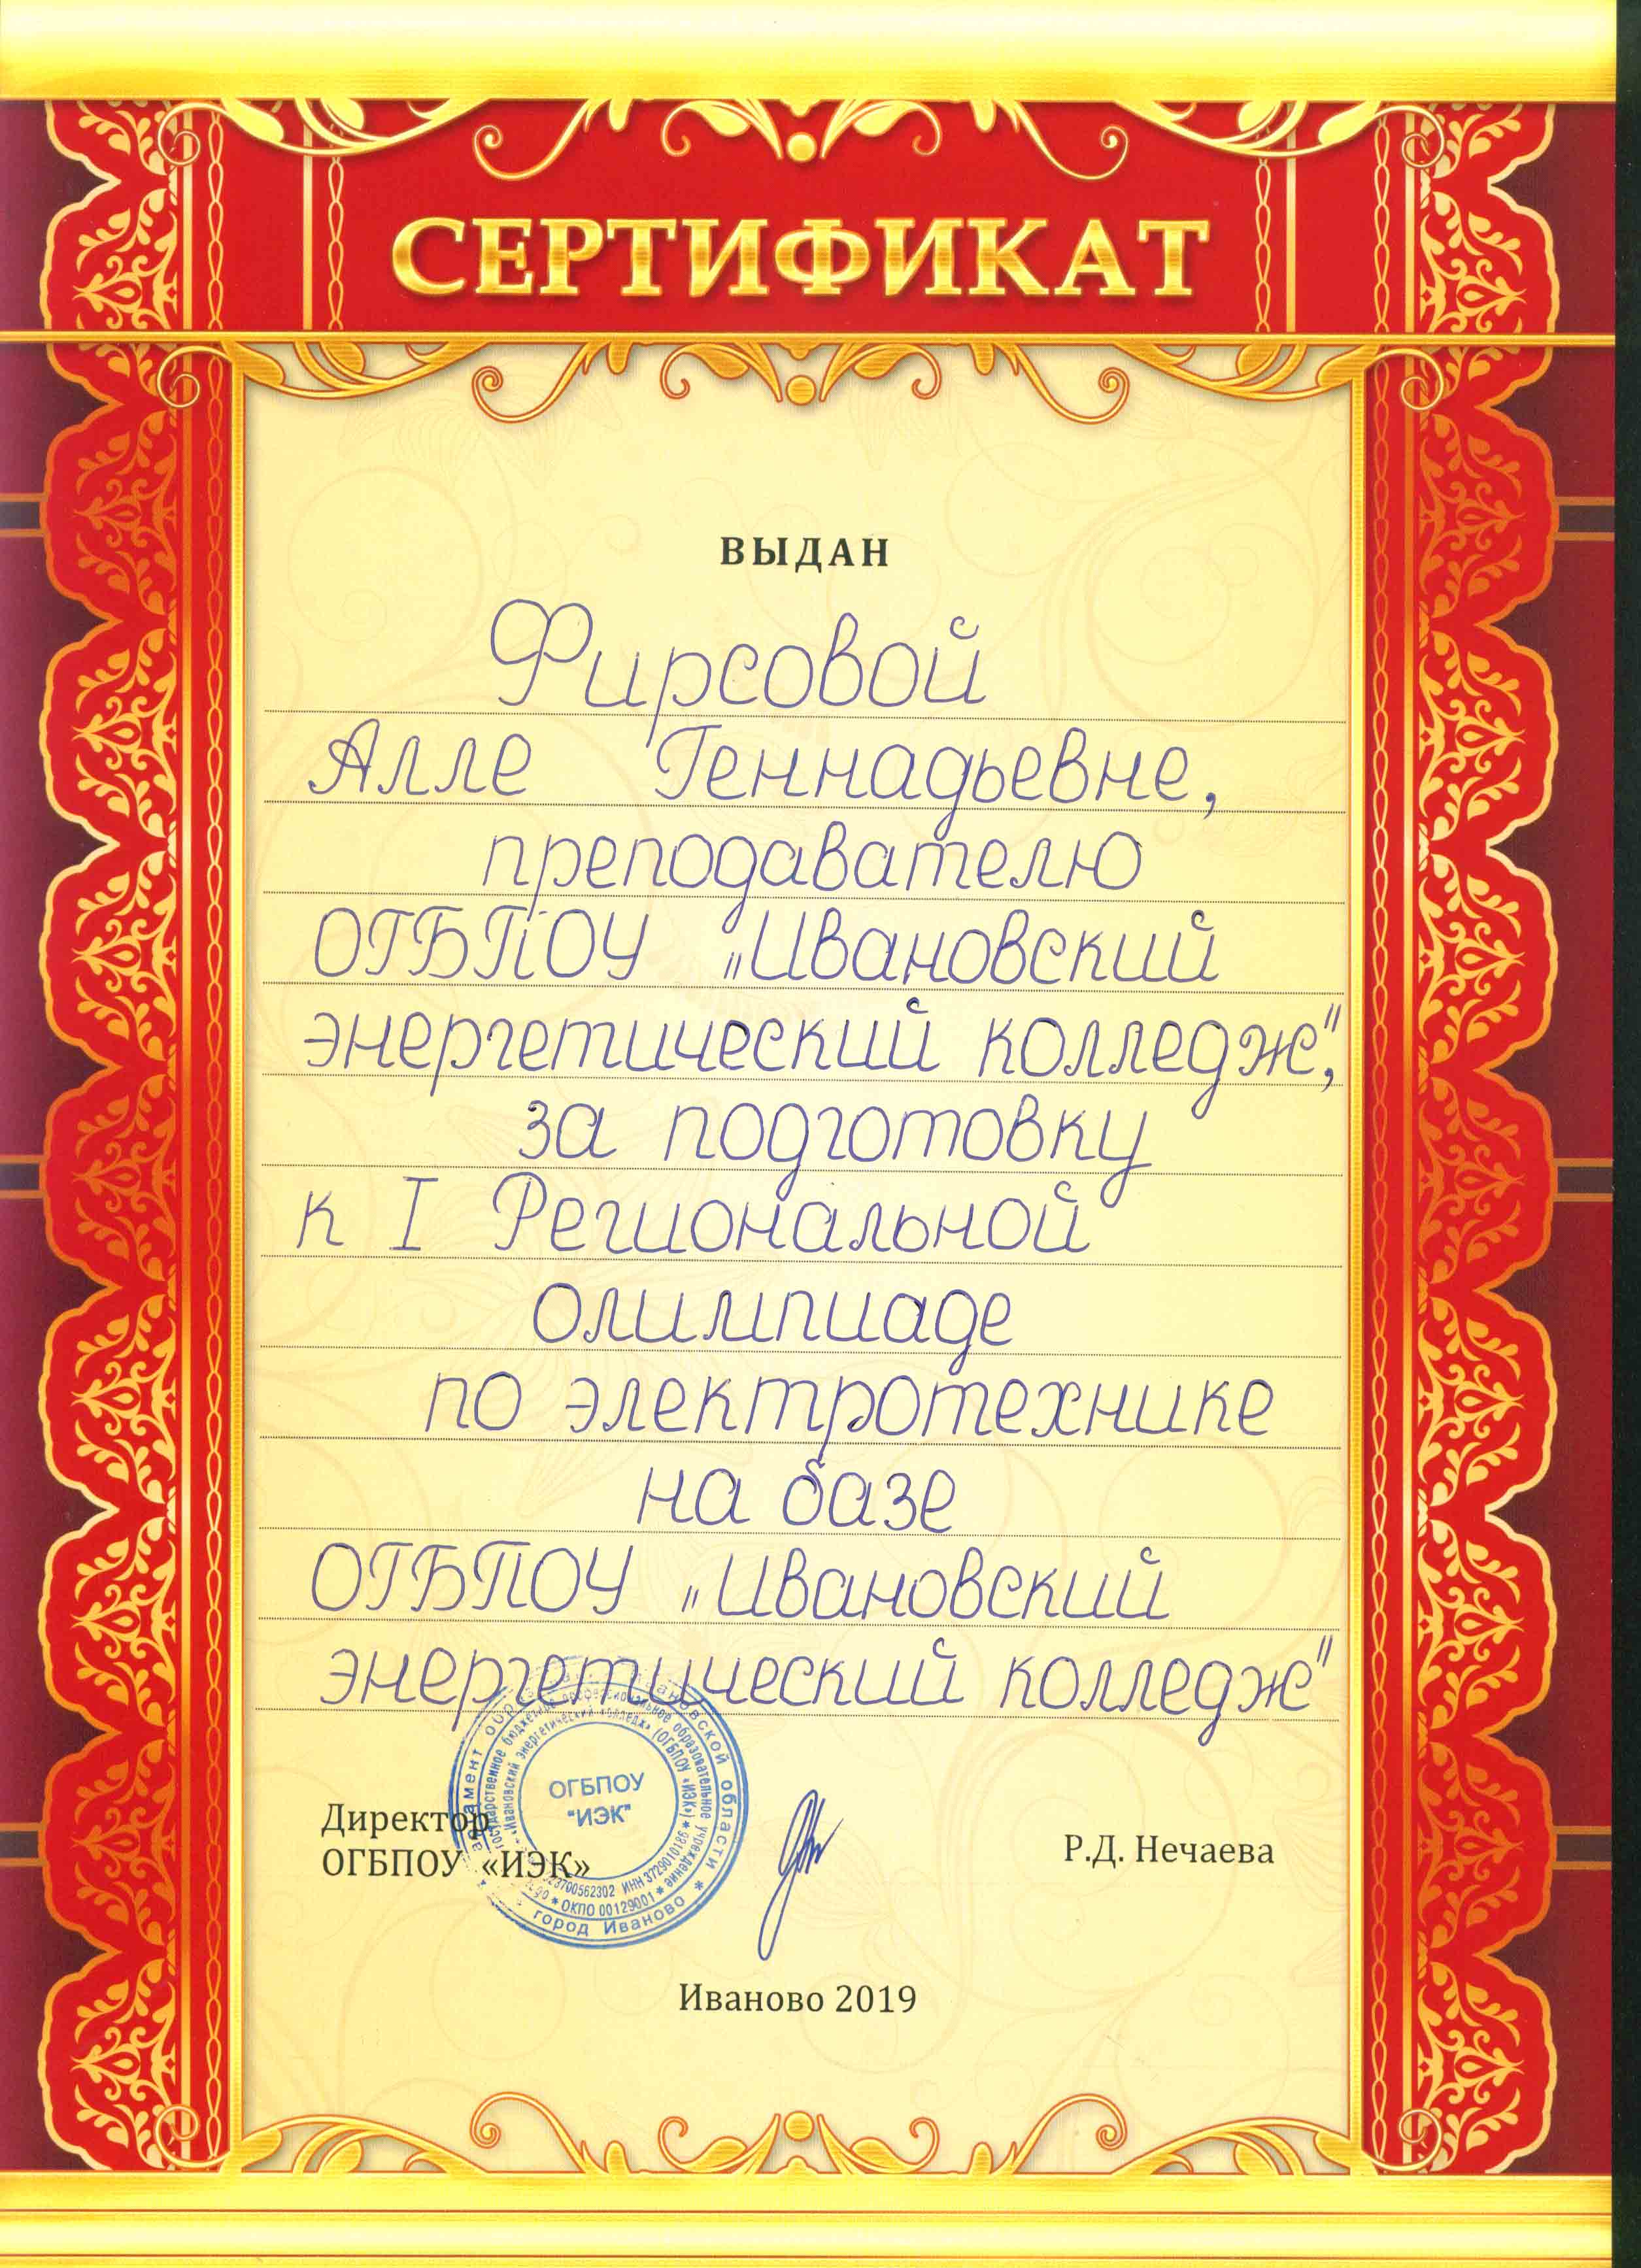 СЕРТИФИКАТ
ВЫДАН
Фирсовой
Алле Геннадьевне,
преподавателю
ОГБПОУ „Ивановский
энергетический колледж",
за подготовку
к I Региональной
олимпиаде
по электротехнике
на базе
ОГБПОУ „Ивановский
энергетический колледж"
ОГБПОУ
"ИЭК"
Ивановской области * город Иваново *
бюджетное профессиональное образовательное учреждение *
«Ивановский энергетический колледж» (ОГБПОУ «ИЭК») *
ИНН 3729010186 *
* ОКПО 00129001 *
Директор
ОГБПОУ «ИЭК»
Р.Д. Нечаева
Иваново 2019